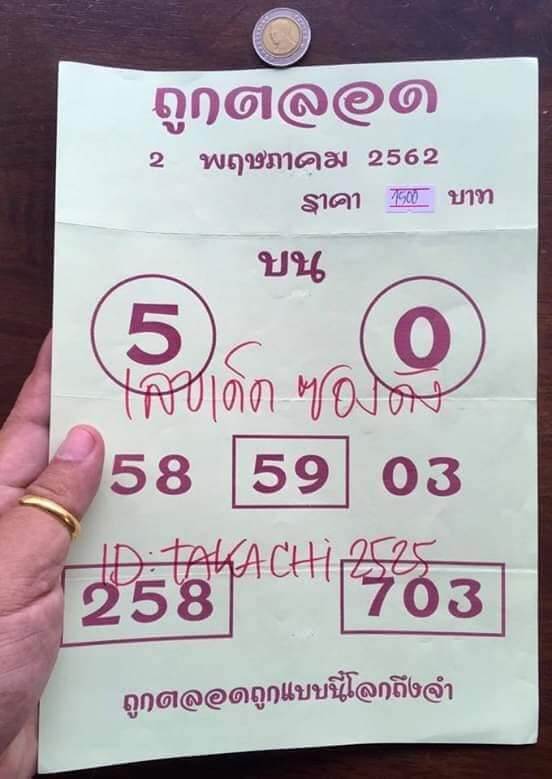 ถูกตลอด
2 พฤษภาคม 2562
ราคา 1500 บาท
บน
5 0
เลขเด็ด ซองดัง
58 59 03
ID: TAKACHi 2525
258 703
ถูกตลอดถูกแบบนี้โลกถึงจำ